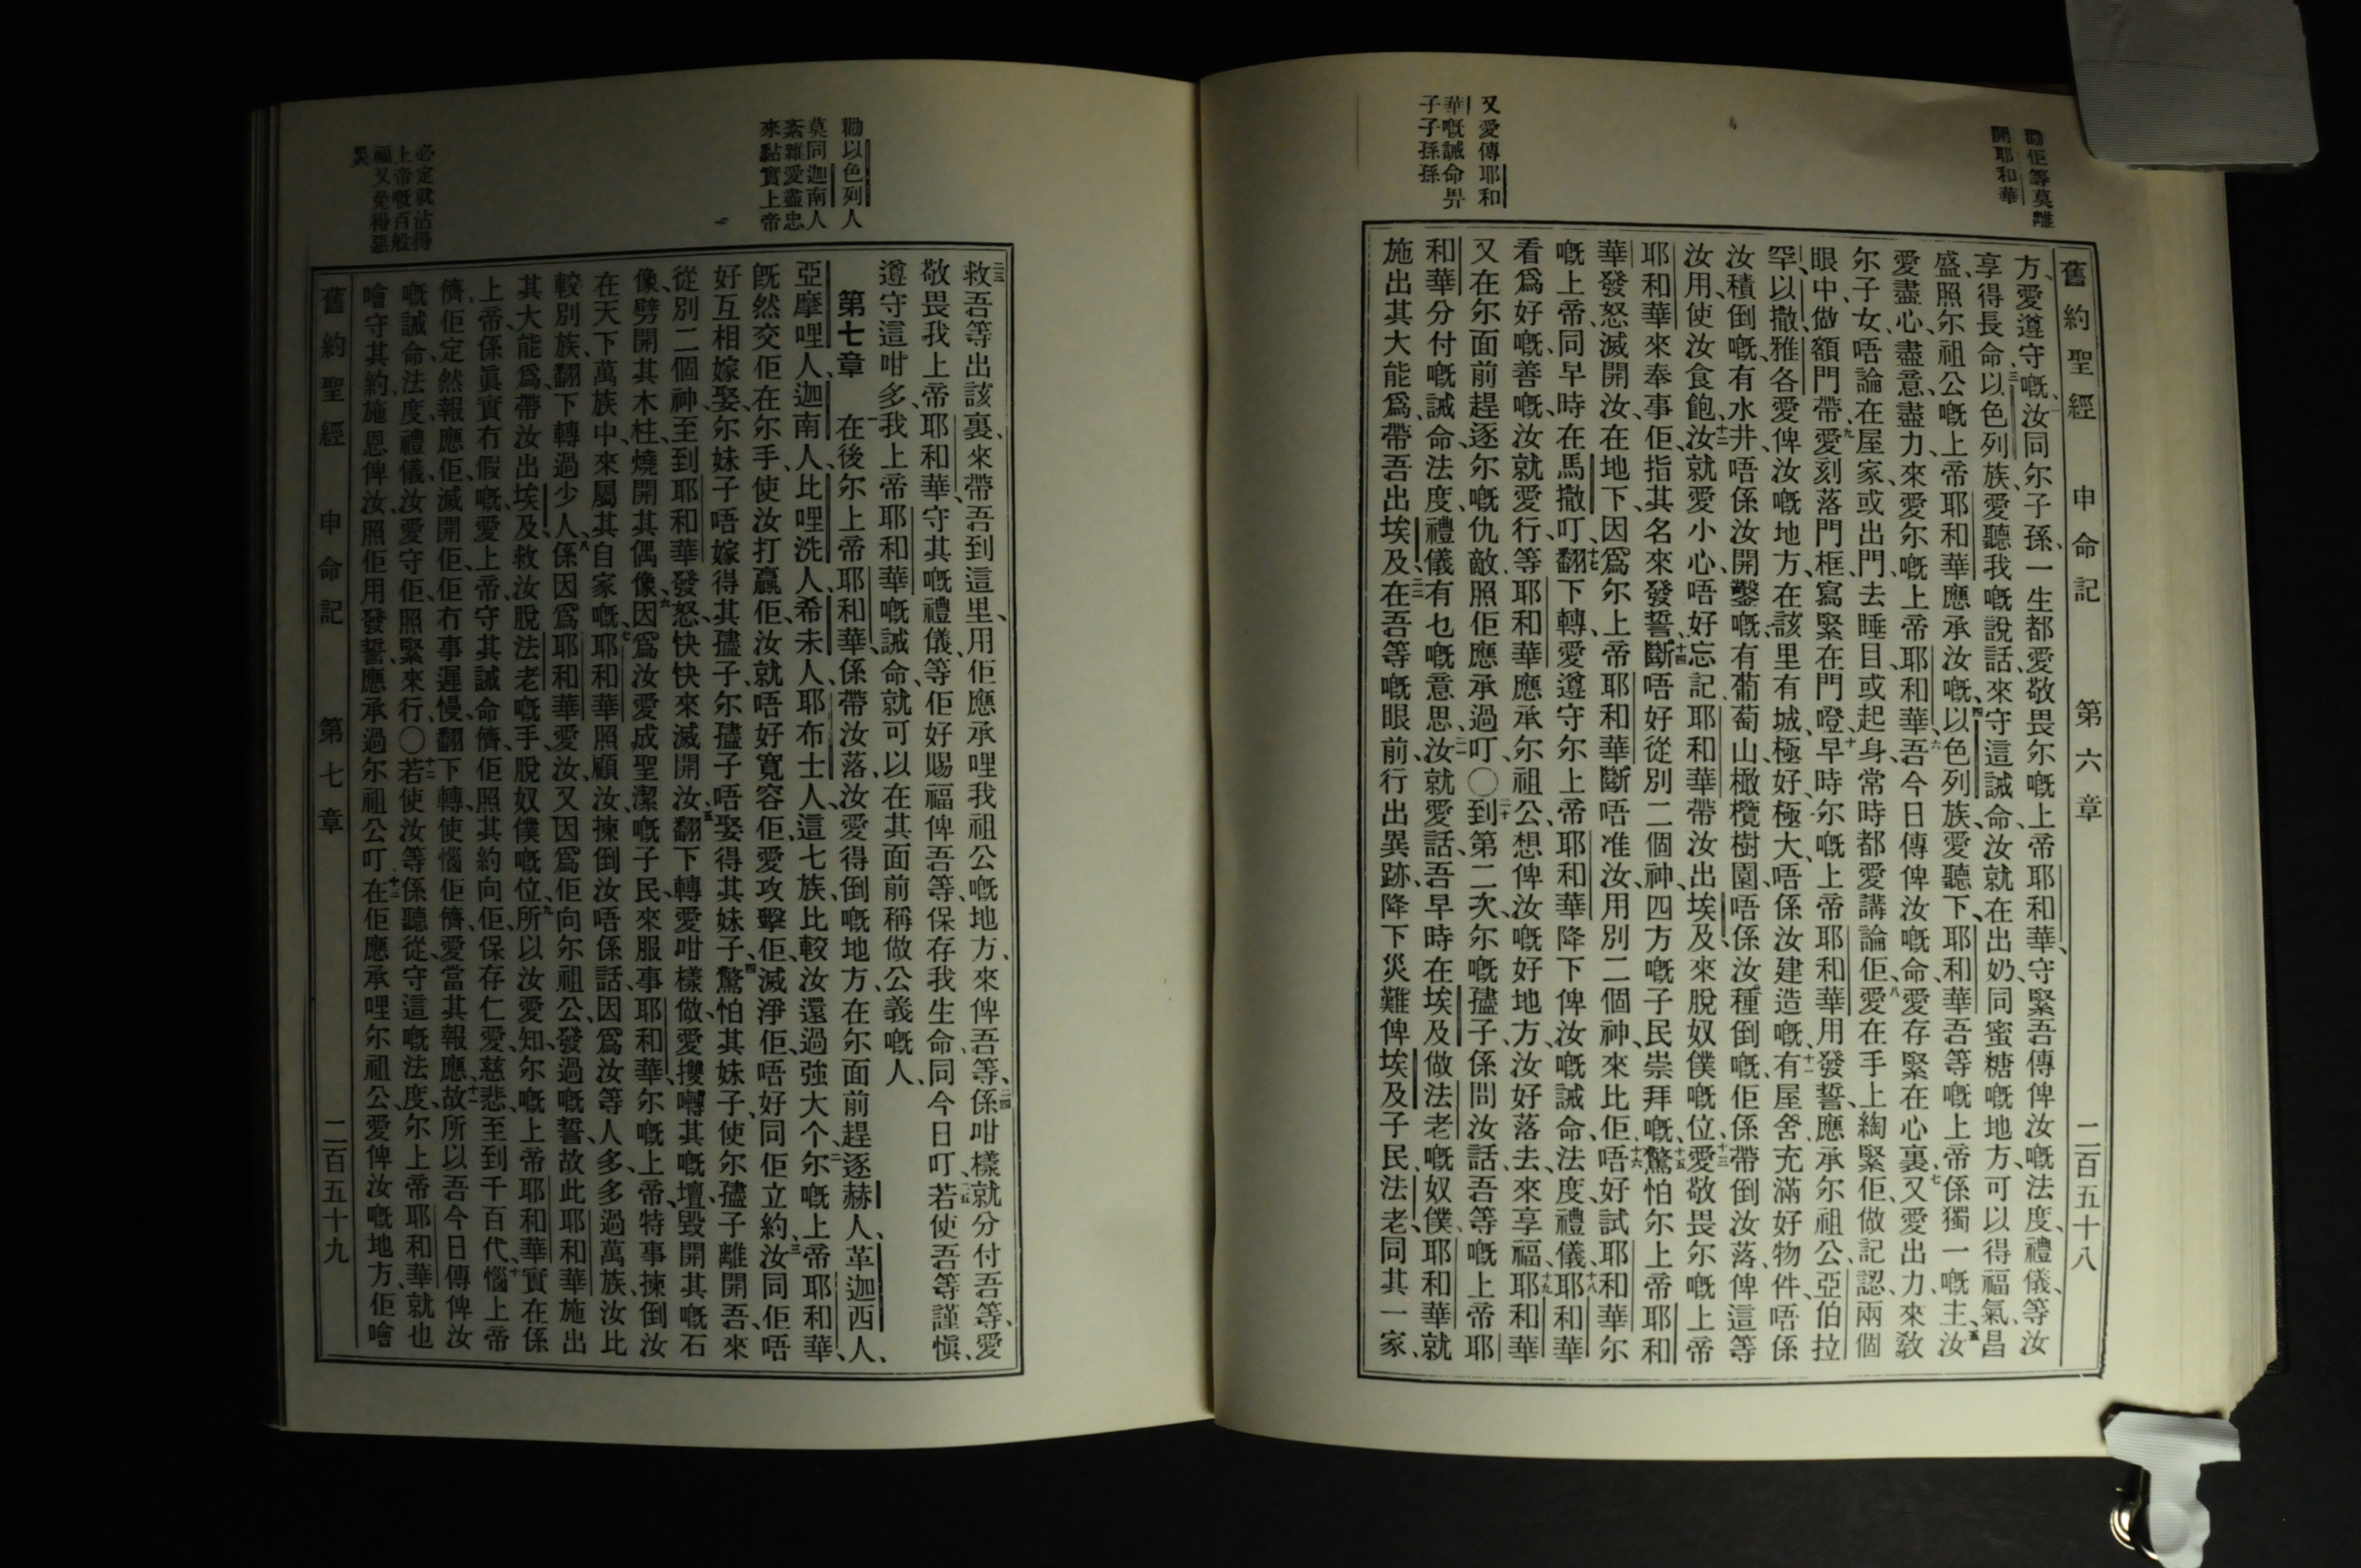 勸佢等莫離
開耶和華
又愛傳耶和
華嘅誡命畀
子子孫孫
舊約聖經 申命記 第六章 二百五十八
方、愛遵守嘅、二汝同尔子孫、一生都愛敬畏尔嘅上帝耶和華、守緊吾傳俾汝嘅法度、禮儀、等汝
享得長命、三以色列族、愛聽我嘅說話、來守這誡命、汝就在出奶同蜜糖嘅地方、可以得福氣、昌
盛、照尔祖公嘅上帝耶和華應承汝嘅、四以色列族、愛聽下、耶和華吾等嘅上帝、係獨一嘅主、五汝
愛盡心、盡意、盡力、來愛尔嘅上帝耶和華、六吾今日傳俾汝嘅命、愛存緊在心裏、七又愛出力來敎
尔子女、唔論在屋家、或出門、去睡目、或起身、常時都愛講論佢、八愛在手上綯緊佢、做記認、兩個
眼中、做額門帶、九愛刻落門框、寫緊在門嶝、十早時尔嘅上帝耶和華用發誓、應承尔祖公、亞伯拉
罕、以撒、雅各、愛俾汝嘅地方、在該里有城、極好、極大、唔係汝建造嘅、十一有屋舍充滿好物件、唔係
汝積倒嘅、有水井、唔係汝開鑿嘅、有葡萄山橄欖樹園、唔係汝種倒嘅、佢係帶倒汝落、俾這等
汝用、使汝食飽、十二汝就愛小心、唔好忘記耶和華帶汝出埃及、來脫奴僕嘅位、十三愛敬畏尔嘅上帝
耶和華、來奉事佢、指其名來發誓、十四斷唔好從別二個神、四方嘅子民崇拜嘅、十五驚怕尔上帝耶和
華發怒、滅開汝在地下、因爲尔上帝耶和華、斷唔准汝、用別二個神、來比佢、十六唔好試耶和華尔
嘅上帝、同早時在馬撒叮、十七翻下轉、愛遵守尔上帝耶和華降下俾汝嘅誡命、法度、禮儀、十八耶和華
看爲好嘅、善嘅、汝就愛行、等耶和華應承尔祖公、想俾汝嘅好地方、汝好落去、來享福、十九耶和華
又在尔面前、趕逐尔嘅仇敵、照佢應承過叮、〇二十到第二次、尔嘅孻子、係問汝話、吾等嘅上帝耶
和華分付嘅誡命、法度、禮儀、有乜嘅意思、二一汝就愛話、吾早時在埃及做法老嘅奴僕、耶和華就
施出其大能爲、帶吾出埃及、二二在吾等嘅眼前、行出異跡、降下災難、俾埃及子民、法老、同其一家、
勸以色列人
莫同迦南人
紊雜愛盡忠
來黏實上帝
必定就沾得
上帝嘅百般
福又免得惡
災
二三救吾等出該裏、來帶吾到這里、用佢應承哩我祖公嘅地方、來俾吾等、二四係咁樣、就分付吾等、愛
敬畏我上帝耶和華、守其嘅禮儀、等佢好賜福俾吾等、保存我生命、同今日叮、二五若使吾等謹愼、
遵守這咁多、我上帝耶和華嘅誡命、就可以在其面前、稱做公義嘅人、
第七章 一在後尔上帝耶和華、係帶汝落、汝愛得倒嘅地方、在尔面前、趕逐赫人、革迦西人、
亞摩哩人、迦南人、比哩洗人、希未人、耶布士人、這七族、比較汝還過強大个、二尔嘅上帝耶和華、
旣然交佢在尔手、使汝打贏佢、汝就唔好寬容佢、愛攻擊佢、滅淨佢、唔好同佢立約、三汝同佢唔
好互相嫁娶、尔妹子唔嫁得其孻子、尔孻子唔娶得其妹子、四驚怕其妹子、使尔孻子離開吾、來
從別二個神、至到耶和華發怒、快快來滅開汝、五翻下轉愛咁樣做、愛攪囀其嘅壇、毀開其嘅石
像、劈開其木柱、燒開其偶像、六因爲汝愛成聖潔嘅子民、來服事耶和華、尔嘅上帝、特事揀倒汝
在天下萬族中、來屬其自家嘅、七耶和華照顧汝、揀倒汝、唔係話、因爲汝等人多、多過萬族、汝比
較別族、翻下轉過少人、八係因爲耶和華愛汝、又因爲佢向尔祖公、發過嘅誓、故此耶和華施出
其大能爲、帶汝出埃及、救汝脫法老嘅手、脫奴僕嘅位、九所以汝愛知、尔嘅上帝耶和華、實在係
上帝、係眞實冇假嘅、愛上帝、守其誡命儕、佢照其約、向佢保存仁愛、慈悲、至到千百代、十惱上帝
儕、佢定然報應佢、滅開佢、佢冇事遲慢、翻下轉、使惱佢儕、愛當其報應、十一故所以吾今日傳俾汝
嘅誡命、法度、禮儀、汝愛守佢、照緊來行、〇十二若使汝等係聽從、守這嘅法度、尔上帝耶和華就也
噲守其約、施恩俾汝、照佢用發誓、應承過尔祖公叮、十三在佢應承哩尔祖公、愛俾汝嘅地方、佢噲
舊約聖經 申命記 第七章 二百五十九